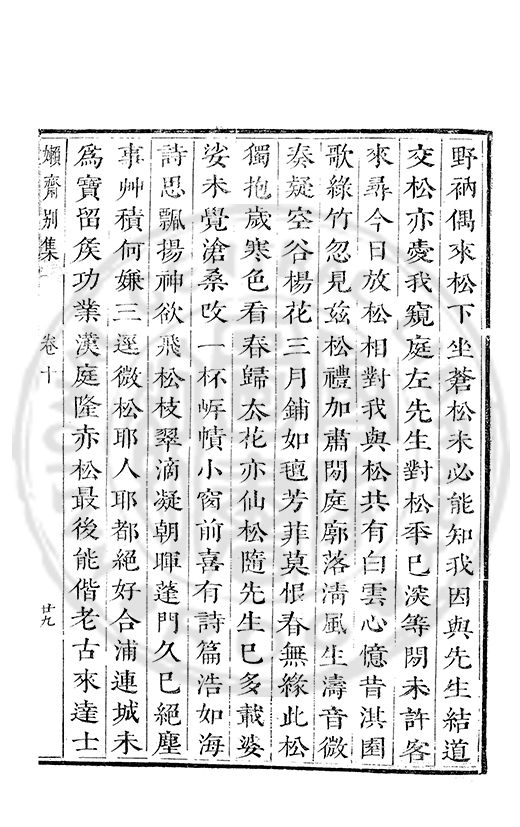 野衲偶來松下坐蒼松未必能知我因與先生結道
交松亦愛我窺庭左先生對松秊已淡等閒未許客
來尋今日放松相對我與松共有白雲心憶昔淇園
歌綠竹忽見兹松禮加肅閒庭廓落淸風生濤音微
奏疑空谷楊花三月鋪如氊芳菲莫恨春無緣此松
獨抱歲寒色看春歸太花亦仙松隨先生已多載婆
娑未覺滄桑改一杯岸幘小窗前喜有詩篇浩如海
詩思飄揚神欲飛松枝翠滴凝朝暉蓬門久已絕塵
事艸積何嫌三逕微松耶人耶都絕好合浦連城未
爲寶留矦功業漢庭隆赤松最後能偕老古來達士
嬾齋别集
卷十
廿九